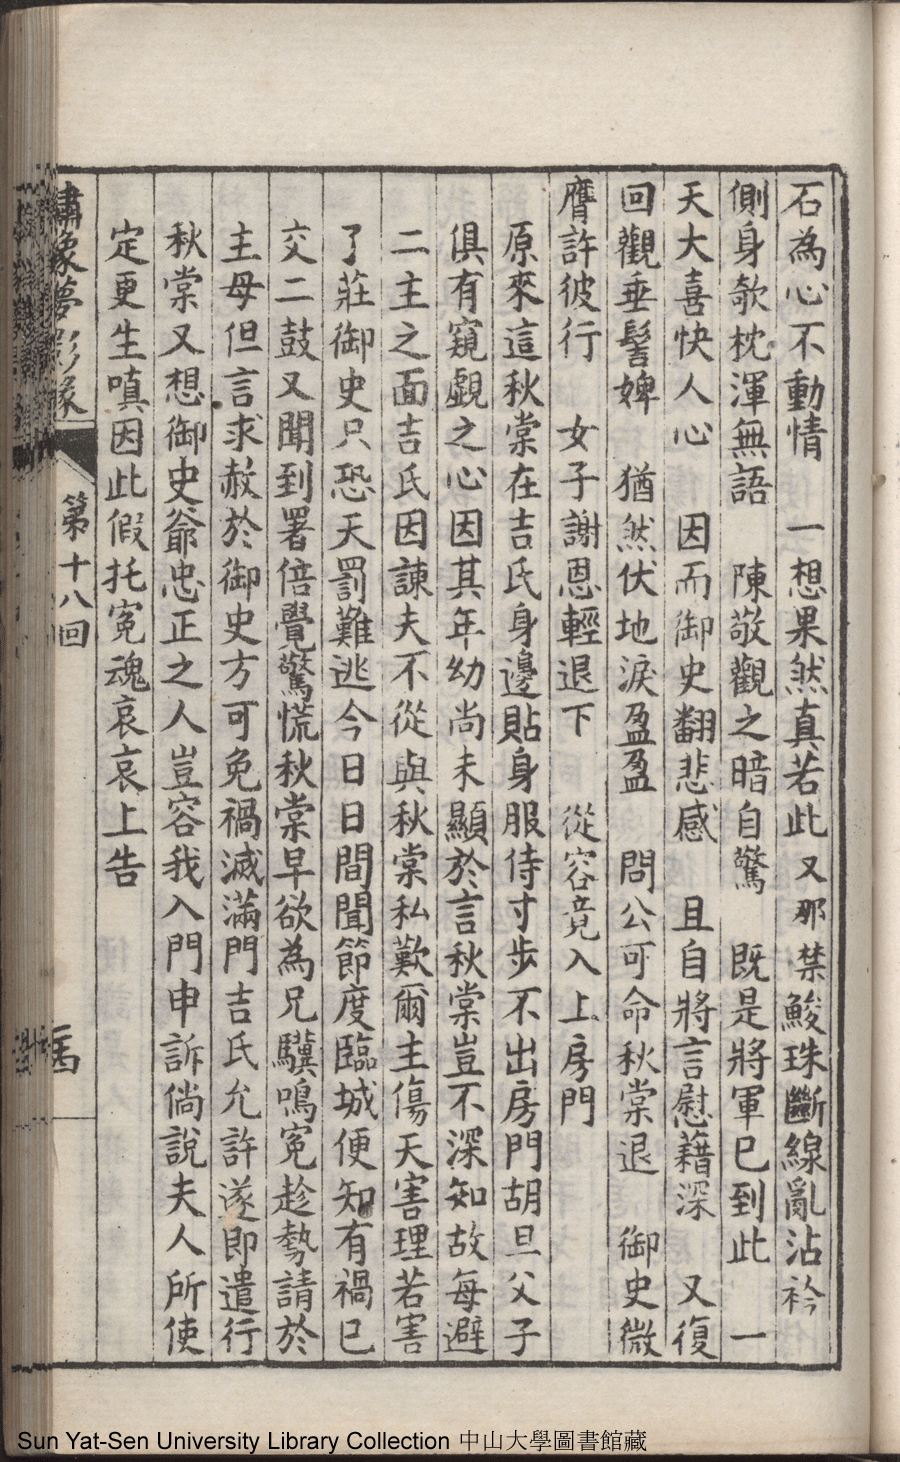 石為心不動情　一想果然真若此　又那禁鮫珠斷線亂沾衿
側身欹枕渾無語　陳敬觀之暗自驚　既是將軍已到此　一
天大喜快人心　因而御史翻悲感　且自將言慰藉深　又復
回觀垂髫婢　猶然伏地淚盈盈　問公可命秋棠退　御史微
膺許彼行　女子謝恩輕退下　從容竟入上房門
原來這秋棠在吉氏身邊貼身服侍寸步不出房門胡旦父子
俱有窺覷之心因其年幼尚未顯於言秋棠豈不深知故每避
二主之面吉氏因諫夫不從與秋棠私歎爾主傷天害理若害
了莊御史只恐天罰難逃今日日間聞節度臨城便知有禍已
交二鼓又聞到署倍覺驚慌秋棠早欲為兄驥鳴冤趁勢請於
主母但言求赦於御史方可免禍滅滿門吉氏允許遂即遣行
秋棠又想御史爺忠正之人豈容我入門申訴倘說夫人所使
定更生嗔因此假托冤魂哀哀上告
繡像夢影緣　第十八回
Sun Yat-Sen University Library Collection 中山大學圖書館藏